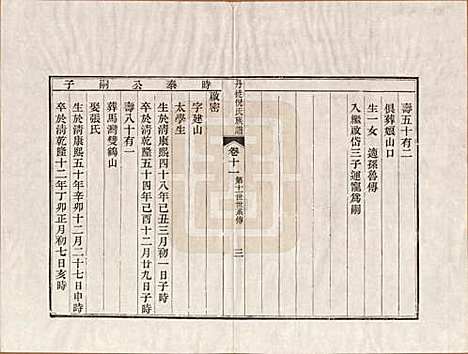 壽五十有二
俱葬𡑞山口
生一女　適孫魯傳
入繼啟岱三子運寵爲嗣
丹徒倪氏族譜
卷十一
第十一世世系傳
三
時奉公嗣子
啟密
字建山
太學生
生於清康熙四十八年己丑三月初一日子時
卒於清乾隆五十四年己酉十二月廿九日子時
壽八十有一
葬馬灣雙鶴山
娶張氏
生於清康熙五十年辛卯十二月二十七日申時
卒於清乾隆十二年丁卯正月初七日亥時